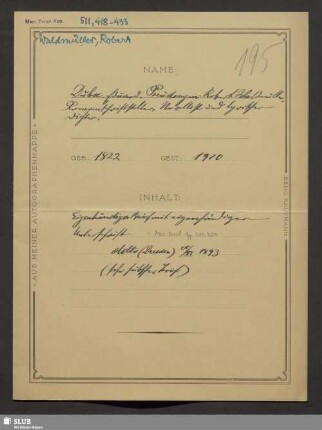 Mscr. Dresd. App. 511, 418-433
Waldmüller, Robert
195
NAME:
Duboc Eduard. Pseudonym Robert Waldmüller
Romanschriftsteller, Novellist und lyrischer
Dichter.
GEB: 1822 GEST: 1910
INHALT:
Eigenhändiger Brief mit eigenhändiger
Unterschrift
(Dresden) 1893
(sehr hübscher Brief)
AUS MEINER AUTOGRAPHENMAPPE
SLUB
Wir führen Wissen.